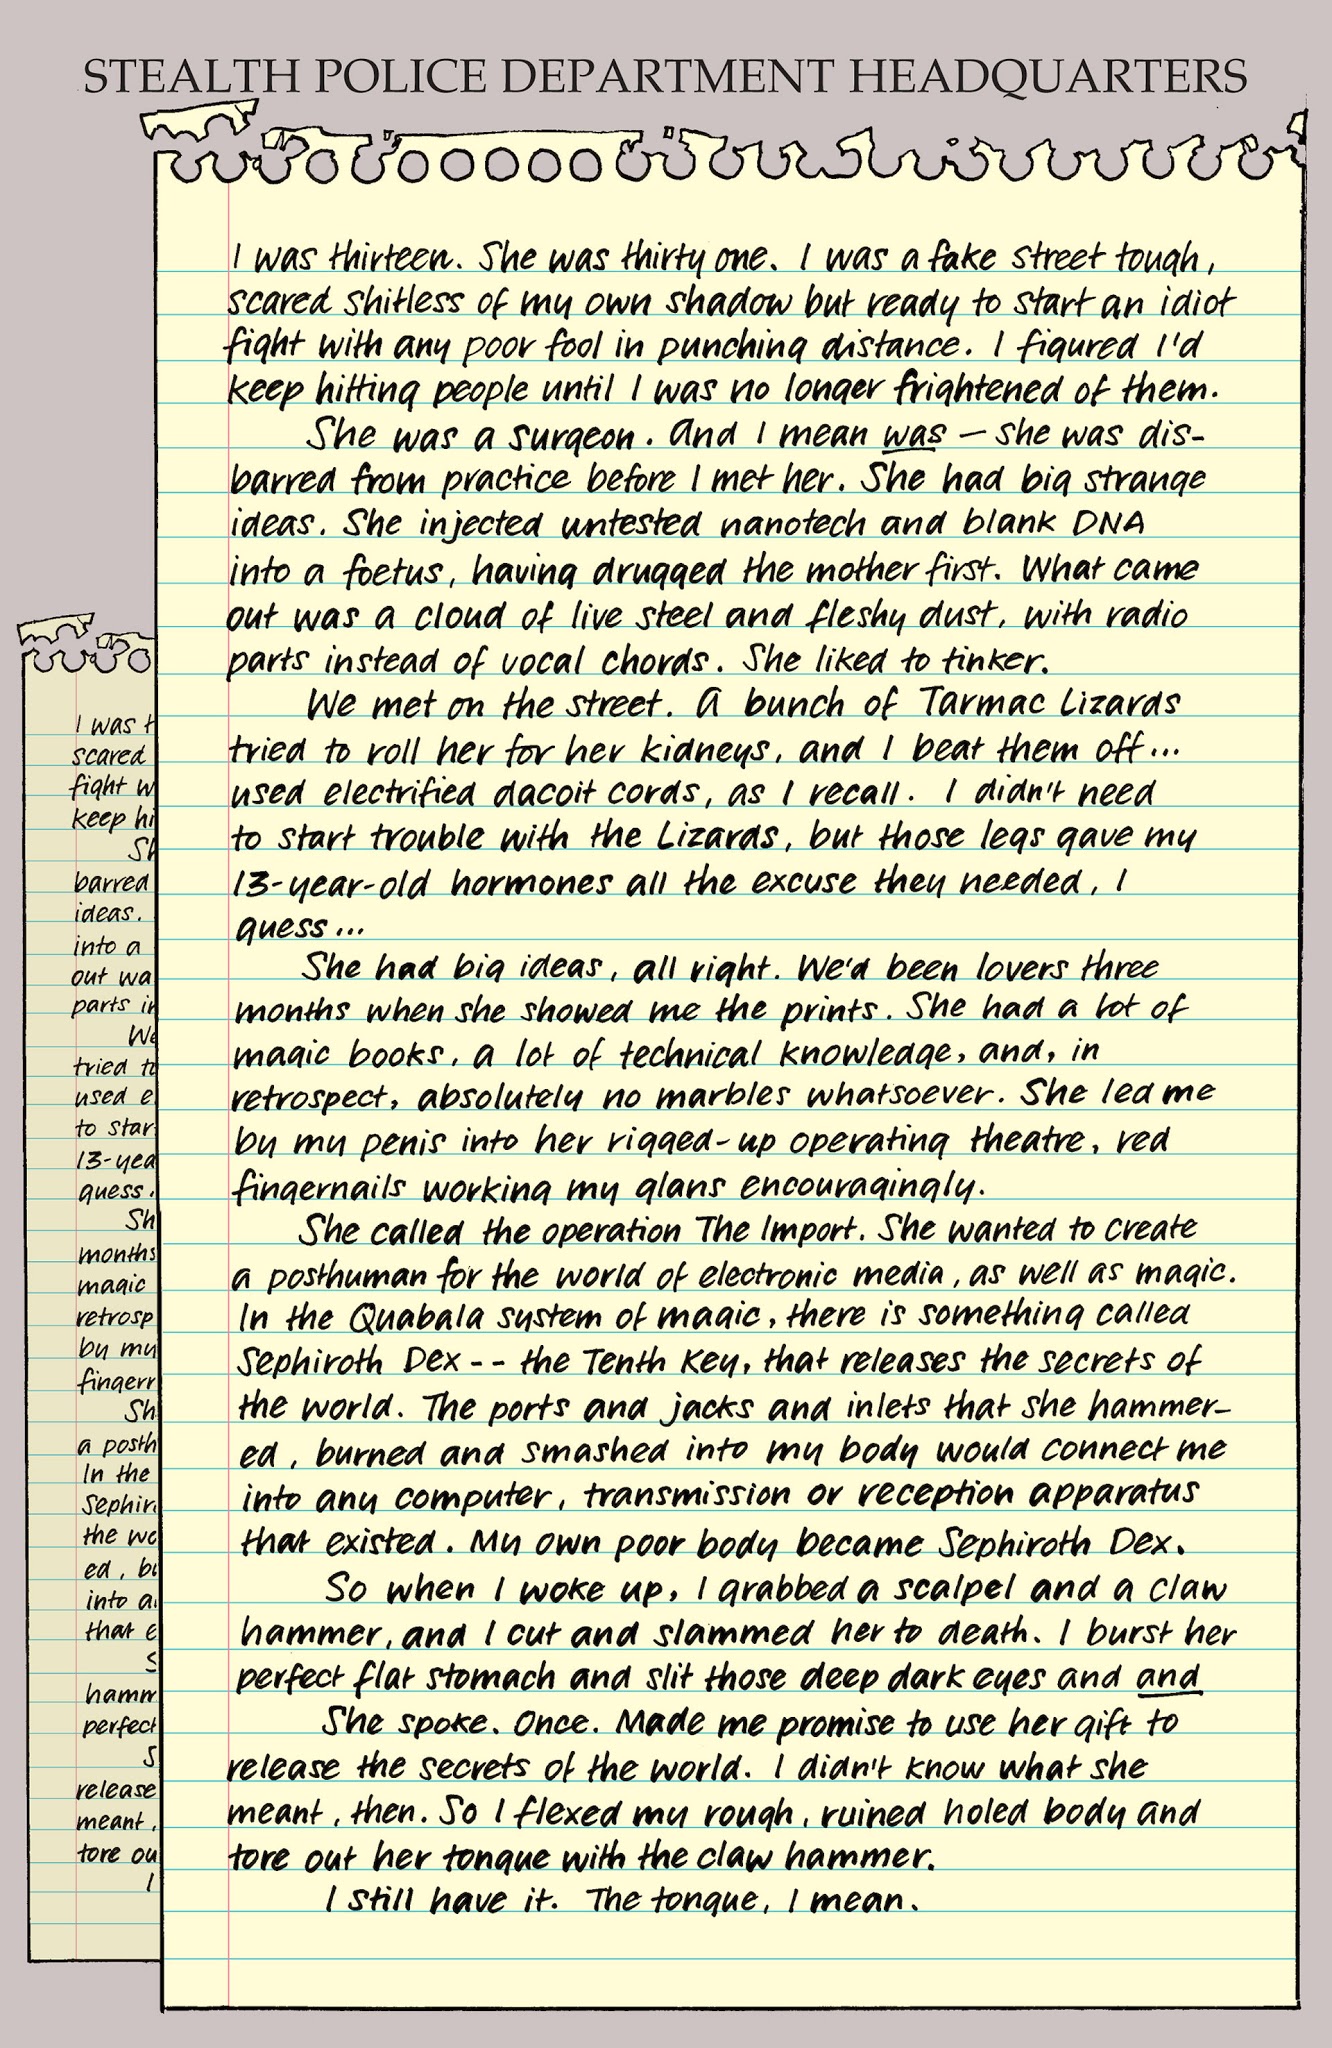 STEALTH POLICE DEPARTMENT HEADQUARTERS
I was thirteen. She was thirty one. I was a fake street tough,
scared shitless of my own shadow but ready to start an idiot
fight with any poor fool in punching distance. I figured I'd
keep hitting people until I was no longer frightened of them.
She was a surgeon. And I mean was — she was dis-
barred from practice before I met her. She had big strange
ideas. She injected untested nanotech and blank DNA
into a foetus, having drugged the mother first. What came
out was a cloud of live steel and fleshy dust, with radio
parts instead of vocal chords. She liked to tinker.
We met on the street. A bunch of Tarmac Lizards
tried to roll her for her kidneys, and I beat them off...
used electrified dacoit cords, as I recall. I didn't need
to start trouble with the Lizards, but those legs gave my
13-year-old hormones all the excuse they needed, I
guess...
She had big ideas, all right. We'd been lovers three
months when she showed me the prints. She had a lot of
magic books, a lot of technical knowledge, and, in
retrospect, absolutely no marbles whatsoever.
She called the operation The Import. She wanted to create
a posthuman for the world of electronic media, as well as magic.
In the Quabala system of magic, there is something called
Sephiroth Dex -- the Tenth Key, that releases the secrets of
the world. The ports and jacks and inlets that she hammer-
ed, burned and smashed into my body would connect me
into any computer, transmission or reception apparatus
that existed. My own poor body became Sephiroth Dex.
So when I woke up, I grabbed a scalpel and a claw
hammer, and I cut and slammed her to death. I burst her
perfect flat stomach and slit those deep dark eyes and and
She spoke. Once. Made me promise to use her gift to
release the secrets of the world. I didn't know what she
meant, then. So I flexed my rough, ruined holed body and
tore out her tongue with the claw hammer.
I still have it. The tongue, I mean.